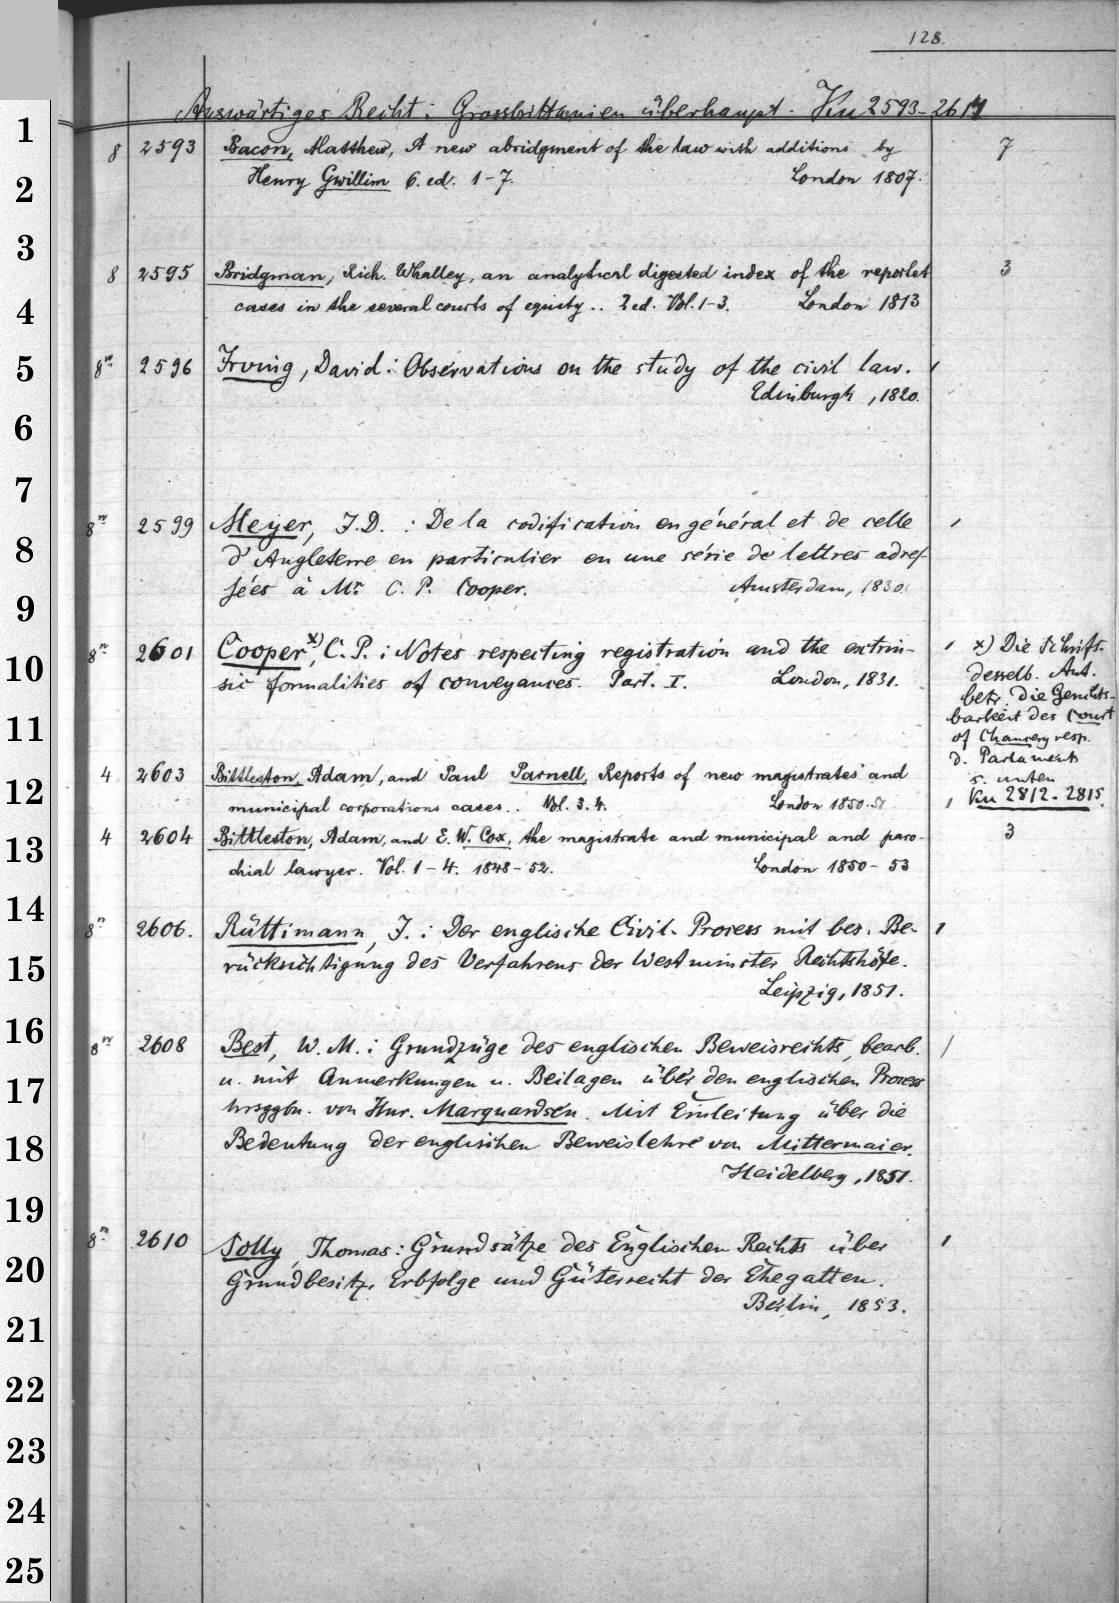 128.
Auswärtiges Recht: Grossbrittanien überhaupt. Ku 2593-2611
1
8 2593 Bacon, Matthew, A new abridgment of the law with additions by 7
2
Henry Gwillim 6. ed. 1-7. London 1807.
3
8 2595 Bridgman, Rich. Whalley, an analytical digested index of the reported 3
4
cases in the several courts of equity .. 2 ed. Vol. 1-3. London 1813
5
8° 2596 Irving, David: Observations on the study of the civil law. 1
Edinburgh, 1820.
6
7
8° 2599 Meyer, J.D. : De la codification en général et de celle 1
8
d'Angleterre en particulier en une série de lettres adres-
9
sées à Mr. C. P. Cooper. Amsterdam, 1830.
10
8° 2601 Cooper x), C. P. : Notes respecting registration and the extrin- 1
sic formalities of conveyances. Part. I. London, 1831.
x) Die Schrift.
desselb. Aut.
betr. die Gerichts-
barkeit des Court
of Chancery resp.
d. Parlaments
s. unten
Ku 2812-2815.
11
12
4 2603 Bittleston, Adam, and Paul Parnell, Reports of new magistrates' and
municipal corporations cases.. Vol. 3. 4. London 1850-51 1
13
4 2604 Bittleston, Adam, and E. W. Cox, the magistrate and municipal and paro- 3
chial lawyer. Vol. 1-4. 1848-52. London 1850-53
14
8° 2606. Rüttimann, J. : Der englische Civil-Process mit bes. Be- 1
15
rücksichtigung des Verfahrens der Westminster Rechtshöfe.
Leipzig, 1851.
16
8° 2608 Best, W. M. : Grundzüge des englischen Beweisrechts, bearb. 1
17
u. mit Anmerkungen u. Beilagen über den englischen Process
hrsggbn. von Hnr. Marquardsen. Mit Einleitung über die
18
Bedeutung der englischen Beweislehre von Mittermaier.
Heidelberg, 1851.
19
8° 2610 Solly, Thomas: Grundsätze des Englischen Rechts über 1
20
Grundbesitz, Erbfolge und Güterrecht der Ehegatten.
Berlin, 1853.
21
22
23
24
25